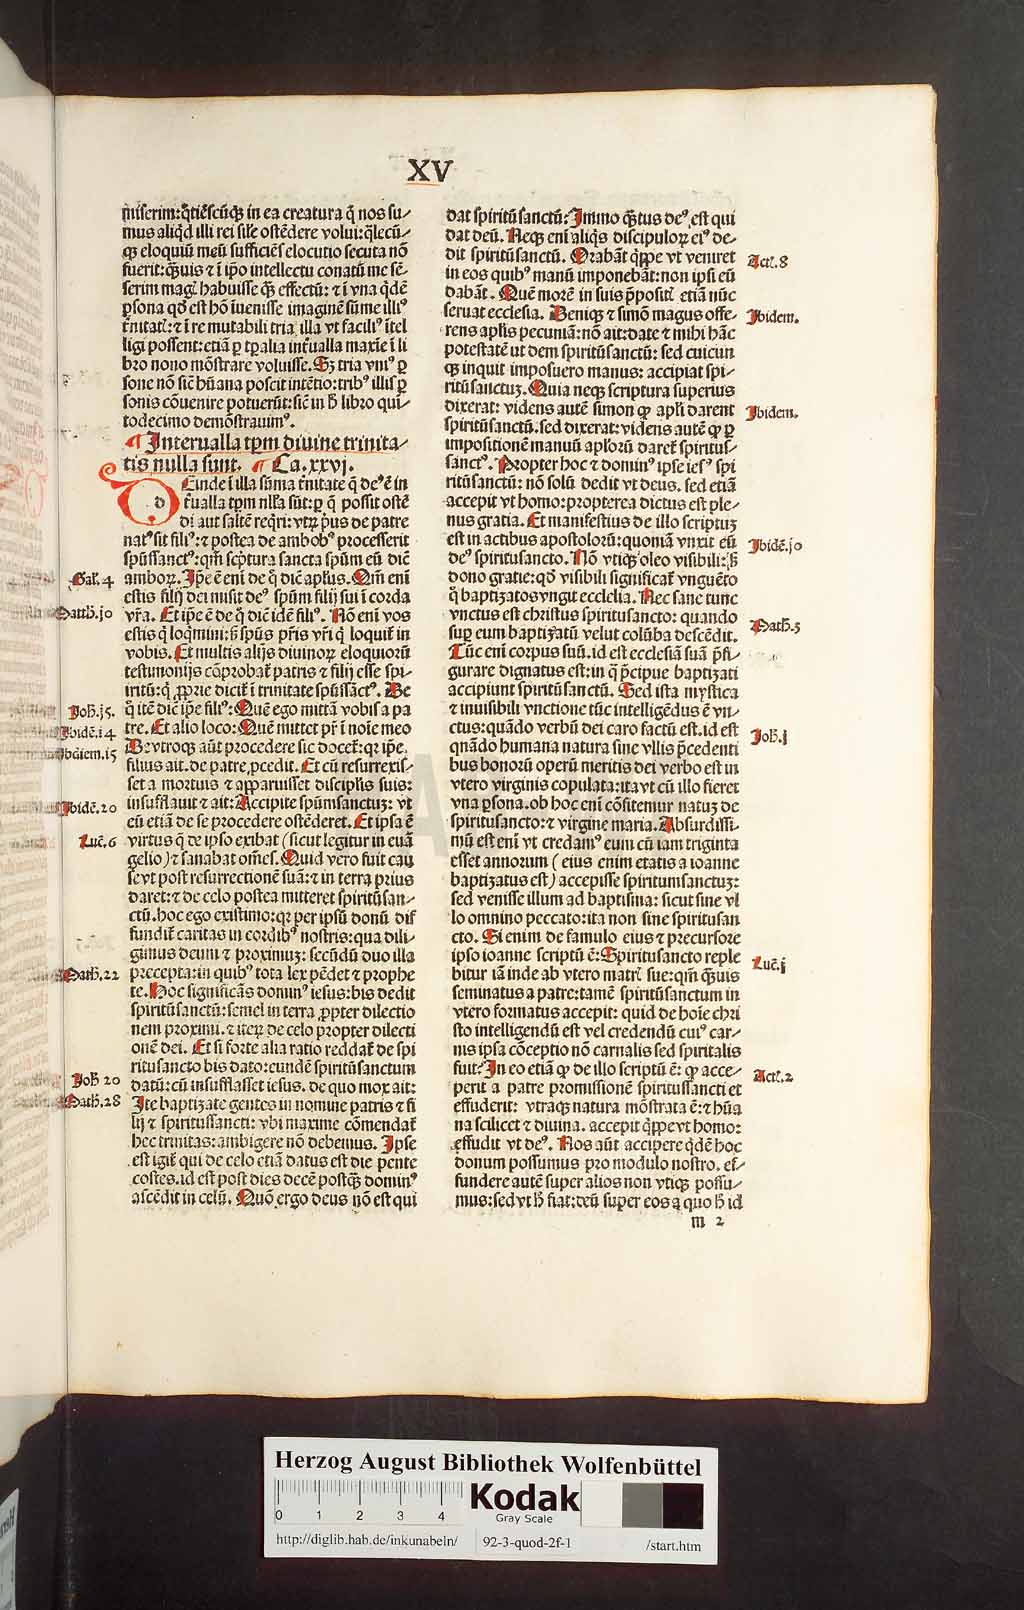 XV
miserim: q̄tiēscūqꝫ in ea creatura q̄ nos su-
mus aliqd̄ illi rei sil'e ostēdere volui: q̄lecū-
qꝫ eloquiū meū sufficiēs elocutio secuta nō
fuerit: q̄ꝫuis ⁊ ī ip̄o intellectu conatū me sē-
serim magꝭ habuisse qꝫ effectū: ⁊ ī vna qd̄ē
ꝑsona qd̓ est hō īuenisse imaginē sūme illiꝰ
tr̄nitatꝭ: ⁊ ī re mutabili tria illa vt faciliꝰ ītel
ligi possent: etiā ꝑ tꝑalia int̄ualla maxīe ī li
bro nono mōstrare voluisse. Sꝫ tria vniꝰ ꝑ
sone nō sic̄ hūana poscit intētio: tribꝰ illis ꝑ
sonis cōuenire potuerūt: sic̄ in h̄ libro qui-
todecimo demōstrauimꝰ.
¶ Interualla tꝑm diuine trinita-
tis nulla sunt. ¶ Ca.xxvj.
d Einde ī illa sūma tr̄nitate q̄ deꝰ ē in
t̄ualla tꝑm nll̄a sūt: ꝑ q̄ possit ostē
di aut saltē req̄ri: vtꝝ pͥus de patre
natꝰ sit filiꝰ: ⁊ postea de ambobꝰ processerit
sp̄ussanctꝰ: qm̄ scͥptura sancta sp̄um eū dic̄
amboꝝ. Ip̄e ē eni de q̄ dic̄ apl̄us. Qm̄ eni
estis filij dei misit deꝰ sp̄um filij sui ī corda
vr̄a. Et ip̄e ē de q̄ dic̄ idē filiꝰ. Nō eni vos
estis q̄ loqͥmini: s̄ sp̄us pr̄is vr̄i q̄ loquit̄ in
vobis. Et multis alijs diuinoꝝ eloquiorū
testimonijs cōprobat̄ patris ⁊ filij esse spi-
ritū: q̄ ꝓprie dicit̄ ī trinitate sp̄ussāctꝰ. De
q̄ itē dic̄ ip̄e filiꝰ: Quē ego mittā vobis a pa
tre. Et alio loco: Quē mittet pr̄ ī noīe meo
De vtroqꝫ aūt procedere sic docet̄: qꝛ ip̄e
filius ait. de patre ꝓcedit. Et cū resurrexis-
set a mortuis ⁊ apparuisset discipl̄is suis:
insufflauit ⁊ ait: Accipite sp̄umsanctuꝫ: vt
eū etiā de se procedere ostēderet. Et ipsa ē
virtus q̄ de ipso exibat (sicut legitur in euā
gelio) ⁊ sanabat om̄es. Quid vero fuit cau
se vt post resurrectionē suā: ⁊ in terra prius
daret: ⁊ de celo postea mitteret spiritūsan-
ctū. hoc ego existimo: qꝛ per ipsū donū dif
fundit̄ caritas in cordibꝰ nostris: qua dili-
gimus deum ⁊ proximuꝫ: secūdū duo illa
precepta: in quibꝰ tota lex pēdet ⁊ prophe
te. Hoc significās dominꝰ iesus: bis dedit
spiritūsanctū: semel in terra ꝓpter dilectio
nem proximi. ⁊ iteꝝ de celo propter dilecti
onē dei. Et si forte alia ratio reddat̄ de spi
ritusancto bis dato: eundē spiritūsanctum
datū: cū insufflasset iesus. de quo mox ait:
Ite baptizate gentes in nomine patris ⁊ fi
lij ⁊ spiritussancti: vbi maxime cōmendat̄
hec trinitas: ambigere nō debemus. Ipse
est igit̄ qui de celo etiā datus est die pente
costes. id est post dies decē postqꝫ dominꝰ
ascēdit in celū. Quō ergo deus nō est qui
Gal. 4
Matth. jo
Joh. j5.
Ibidē. i4
Ibidem. i5
Ibidē. 20
Luc. 6
Math. 22
Joh 20
Math. 28
dat spiritūsanctū: Immo qꝫtus deꝰ est qui
dat deū. Neqꝫ eni aliqͥs discipuloꝝ eiꝰ de-
dit spiritūsanctū. Orabāt qͥppe vt veniret
in eos quibꝰ manū imponebāt: non ipsi eū
dabāt. Quē morē in suis p̄positꝭ etiā nūc
seruat ecclesia. Deniqꝫ ⁊ simō magus offe-
rens apl̄is pecuniā: nō ait: date ⁊ mihi hāc
potestatē ut dem spiritūsanctū: sed cuicun
qꝫ inquit imposuero manus: accipiat spi-
ritūsanctuꝫ. Quia neqꝫ scriptura superius
dixerat: videns autē simon qꝙ apl̄i darent
spiritūsanctū. sed dixerat: videns autē qꝙ ꝑ
impositionē manuū apl̄orū daret̄ spiritus-
sanctꝰ. Propter hoc ⁊ dominꝰ ipse iesꝰ spi
ritūsanctū: nō solū dedit vt deus. sed etiā
accepit vt homo: propterea dictus est ple-
nus gratia. Et manifestius de illo scriptuꝫ
est in actibus apostolorū: quoniā vnxit eū
deꝰ spiritusancto. Nō vtiqꝫ oleo visibili: s̄
dono gratie: qd̓ visibili significat̄ vnguēto
q̄ baptizatos vngit ecclesia. Nec sane tunc
vnctus est christus spiritusancto: quando
suꝑ eum baptizatū velut colūba descēdit.
Tūc eni corpus suū. id est ecclesiā suā p̄fi-
gurare dignatus est: in q̄ p̄cipue baptizati
accipiunt spiritūsanctū. Sed ista mystica
⁊ inuisibili vnctione tūc intelligēdus ē vn-
ctus: quādo verbū dei caro factū est. id est
quādo humana natura sine vllis p̄cedenti
bus bonorū operū meritis dei verbo est in
vtero virginis copulata: ita vt cū illo fieret
vna ꝑsona. ob hoc eni cōfitemur natuꝫ de
spiritusancto: ⁊ virgine maria. Absurdissi-
mū est eni vt credamꝰ eum cū iam triginta
esset annorum (eius enim etatis a ioanne
baptizatus est) accepisse spiritumsanctuꝫ:
sed venisse illum ad baptisma: sicut sine vl
lo omnino peccato: ita non sine spiritusan
cto. Si enim de famulo eius ⁊ precursore
ipso ioanne scriptū ē: Spiritusancto reple
bitur iā inde ab vtero matrꝭ sue: qm̄ q̄ꝫuis
seminatus a patre: tamē spiritūsanctum in
vtero formatus accepit: quid de hoīe chri
sto intelligendū est vel credendū cuiꝰ car-
nis ipsa cōceptio nō carnalis sed spiritalis
fuit: In eo etiā qꝙ de illo scriptū ē: qꝙ acce-
perit a patre promissionē spiritussancti et
effuderit: vtraqꝫ natura mōstrata ē: ⁊ hūa
na scilicet ⁊ diuina. accepit qͥppe vt homo:
effudit vt deꝰ. Nos aūt accipere qd̄ē hoc
donum possumus pro modulo nostro. ef-
fundere autē super alios non vtiqꝫ possu-
mus: sed vt h̄ fiat: deū super eos a quo h̄ id
m 2
Actꝭ. 8
Ibidem.
Ibidem.
Ibidē. jo
Math. 5
Joh. j
Luc̄. j
Actꝭ. 2
Herzog August Bibliothek Wolfenbüttel
0 1 2 3 4
Kodak
Gray Scale
http://diglib.hab.de/inkunabeln/ 92-3-quod-2f-1 /start.htm